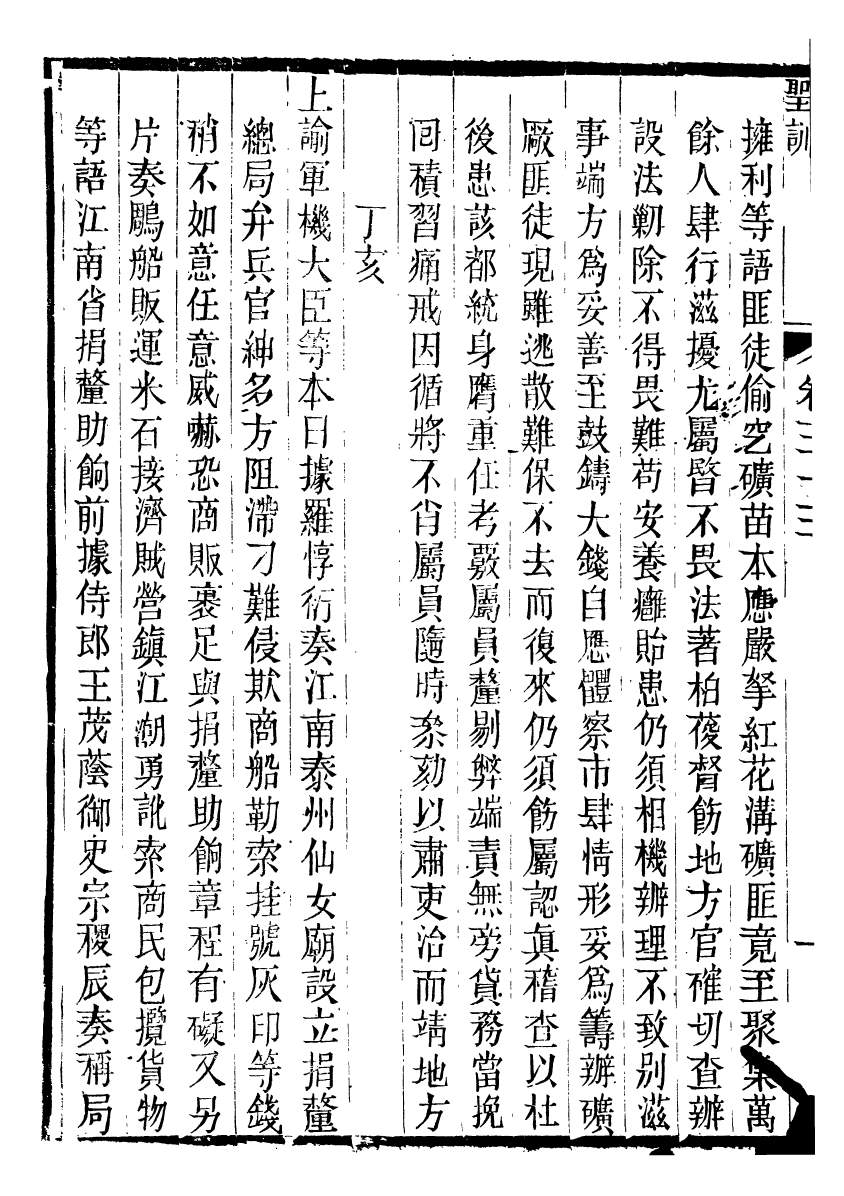 聖訓
卷三十三
擁利等語匪徒偷挖礦苗本應嚴拏紅花溝礦匪竟至聚集萬
餘人肆行滋擾尤屬暋不畏法著柏葰督飭地方官確切查辦
設法剿除不得畏難苟安養癰貽患仍須相機辦理不致別滋
事端方爲妥善至鼓鑄大錢自應體察市肆情形妥爲籌辦礦
厰匪徒現雖逃散難保不去而復來仍須飭屬認眞稽查以杜
後患該都統身膺重任考覈屬員釐剔弊端責無旁貸務當挽
囘積習痛戒因循將不肖屬員隨時叅劾以肅吏治而靖地方
丁亥
上諭軍機大臣等本日據羅惇衍奏江南泰州仙女廟設立捐釐
總局弁兵官紳多方阻滯刁難侵欺商船勒索挂號灰印等錢
稍不如意任意威嚇恐商販裹足與捐釐助餉章程有礙又另
片奏鵰船販運米石接濟賊營鎭江潮勇訛索商民包攬貨物
等語江南省捐釐助餉前據侍郎王茂蔭御史宗稷辰奏稱局